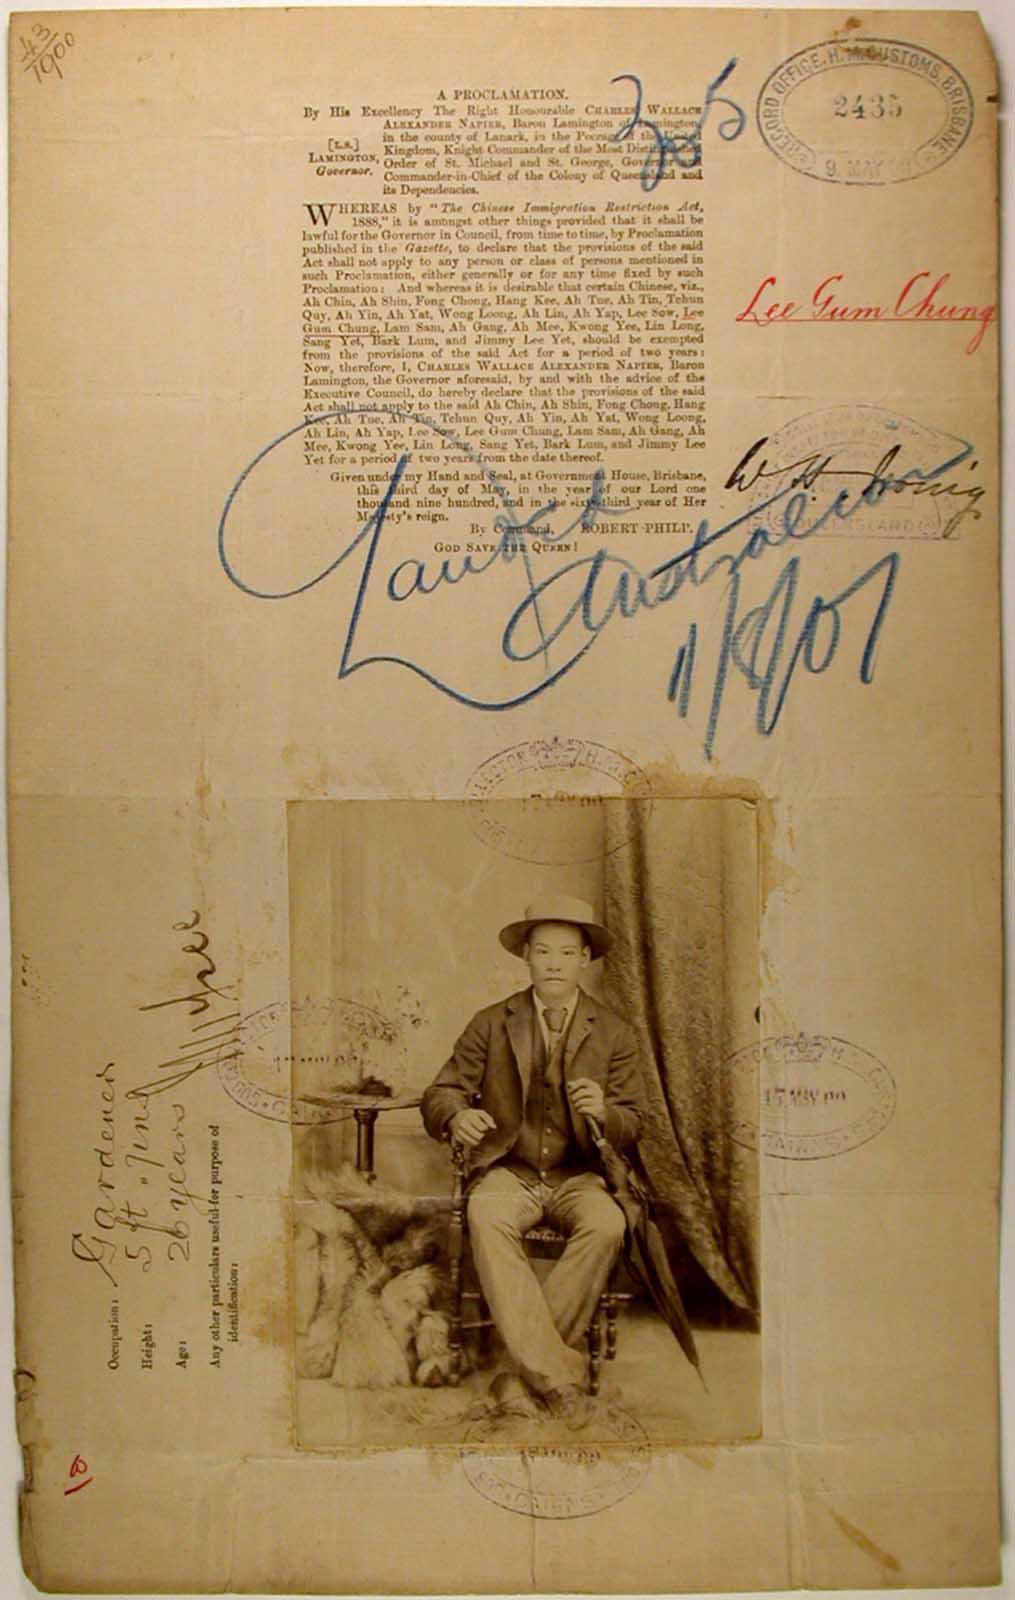 43/1900
A PROCLAMATION.
By His Excellency The Right Honourable CHARLES WALLACE
ALEXANDER NAPIER, Baron Lamington of Lamington,
in the county of Lanark, in the Peerage of the United
[L.S.] Kingdom, Knight Commander of the Most Distinguished
LAMINGTON, Order of St. Michael and St. George, Governor and
Governor. Commander-in-Chief of the Colony of Queensland and
its Dependencies.
305
RECORD OFFICE. H. M. CUSTOMS. BRISBANE
2435
9 MAY 00
WHEREAS by "The Chinese Immigration Restriction Act,
1888," it is amongst other things provided that it shall be
lawful for the Governor in Council, from time to time, by Proclamation
published in the Gazette, to declare that the provisions of the said
Act shall not apply to any person or class of persons mentioned in
such Proclamation, either generally or for any time fixed by such
Proclamation: And whereas it is desirable that certain Chinese, viz.,
Ah Chin, Ah Shin, Fong Chong, Hang Kee, Ah Tue, Ah Tin, Tchun
Quy, Ah Yin, Ah Yat, Wong Loong, Ah Lin, Ah Yap, Lee Sow, Lee
Gum Chung, Lam Sam, Ah Gang, Ah Mee, Kwong Yee, Lin Long,
Sang Yet, Bark Lum, and Jimmy Lee Yet, should be exempted
from the provisions of the said Act for a period of two years:
Now, therefore, I, CHARLES WALLACE ALEXANDER NAPIER, Baron
Lamington, the Governor aforesaid, by and with the advice of the
Executive Council, do hereby declare that the provisions of the said
Act shall not apply to the said Ah Chin, Ah Shin, Fong Chong, Hang
Kee, Ah Tue, Ah Tin, Tchun Quy, Ah Yin, Ah Yat, Wong Loong,
Ah Lin, Ah Yap, Lee Sow, Lee Gum Chung, Lam Sam, Ah Gang, Ah
Mee, Kwong Yee, Lin Long, Sang Yet, Bark Lum, and Jimmy Lee
Yet for a period of two years from the date thereof.
Given under my Hand and Seal, at Government House, Brisbane,
this third day of May, in the year of our Lord one
thousand nine hundred, and in the sixty-third year of Her
Majesty's reign.
By Command, ROBERT PHILP.
GOD SAVE THE QUEEN!
Lee Gum Chung
QUEENSLAND
Landed
Australian
1/8/01
COLLECTOR H.M. CUSTOMS
CAIRNS
17 MAY 00
Occupation: Gardener
Height: 5 ft
Age: 26 years
Any other particulars useful for purpose of
identification: